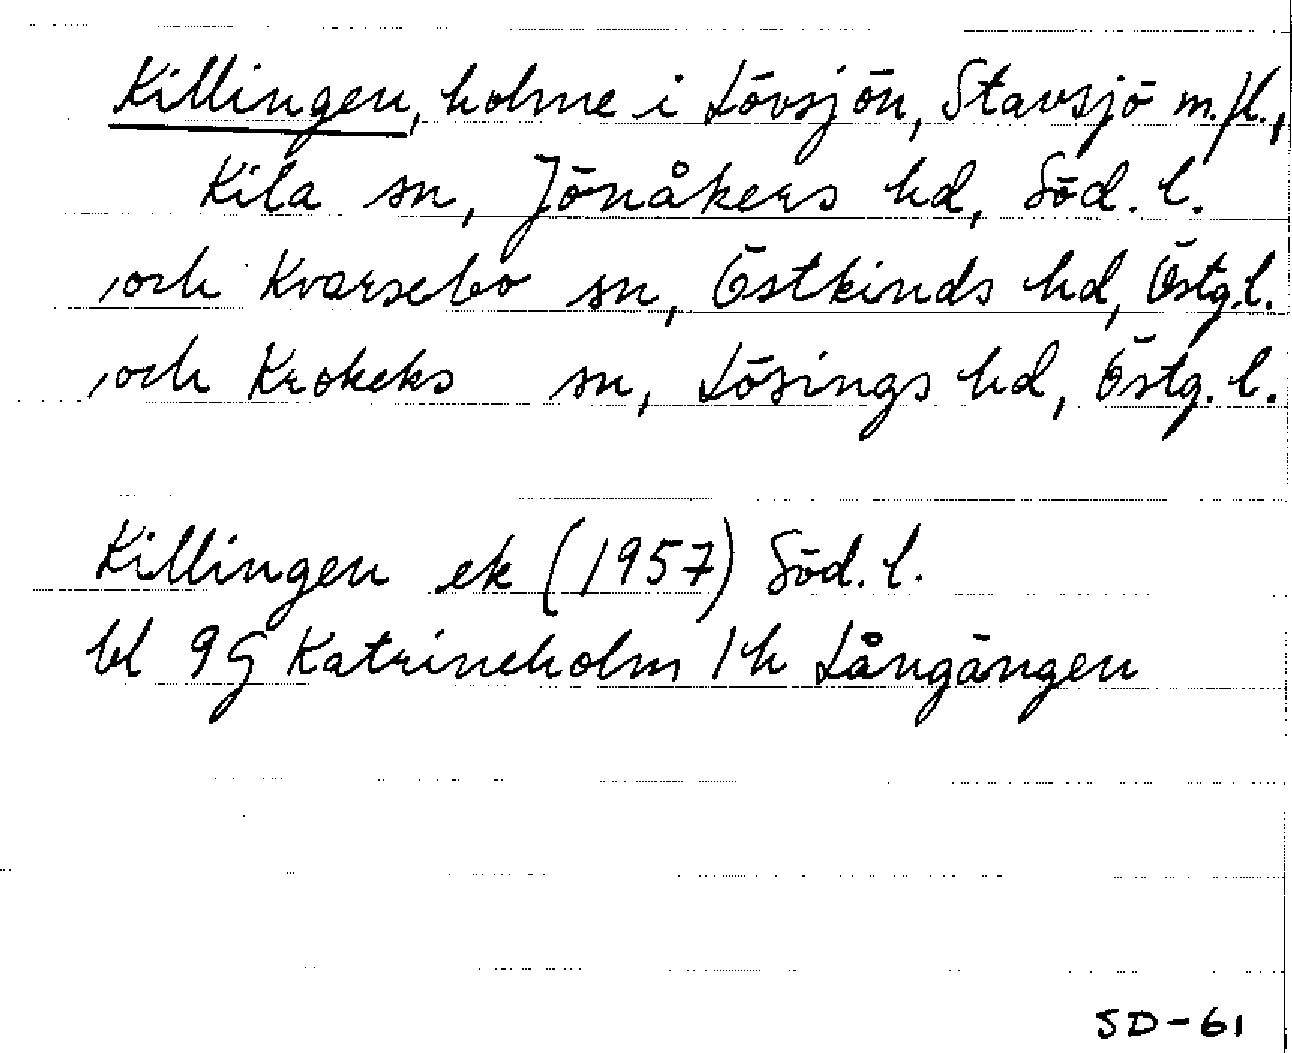 Killingen, holme i Lövsjön, Stavsjö m.fl.,
Kila sn, Jönåkers hd, Söd. l.
, och Kvarsebo sn, Östkinds hd, Östg. l.
, och Krokeks sn, Lösings hd, Östg. l.
Killingen ek (1957) Söd. l.
bl 9G Katrineholm 1h Långängen
SD-61